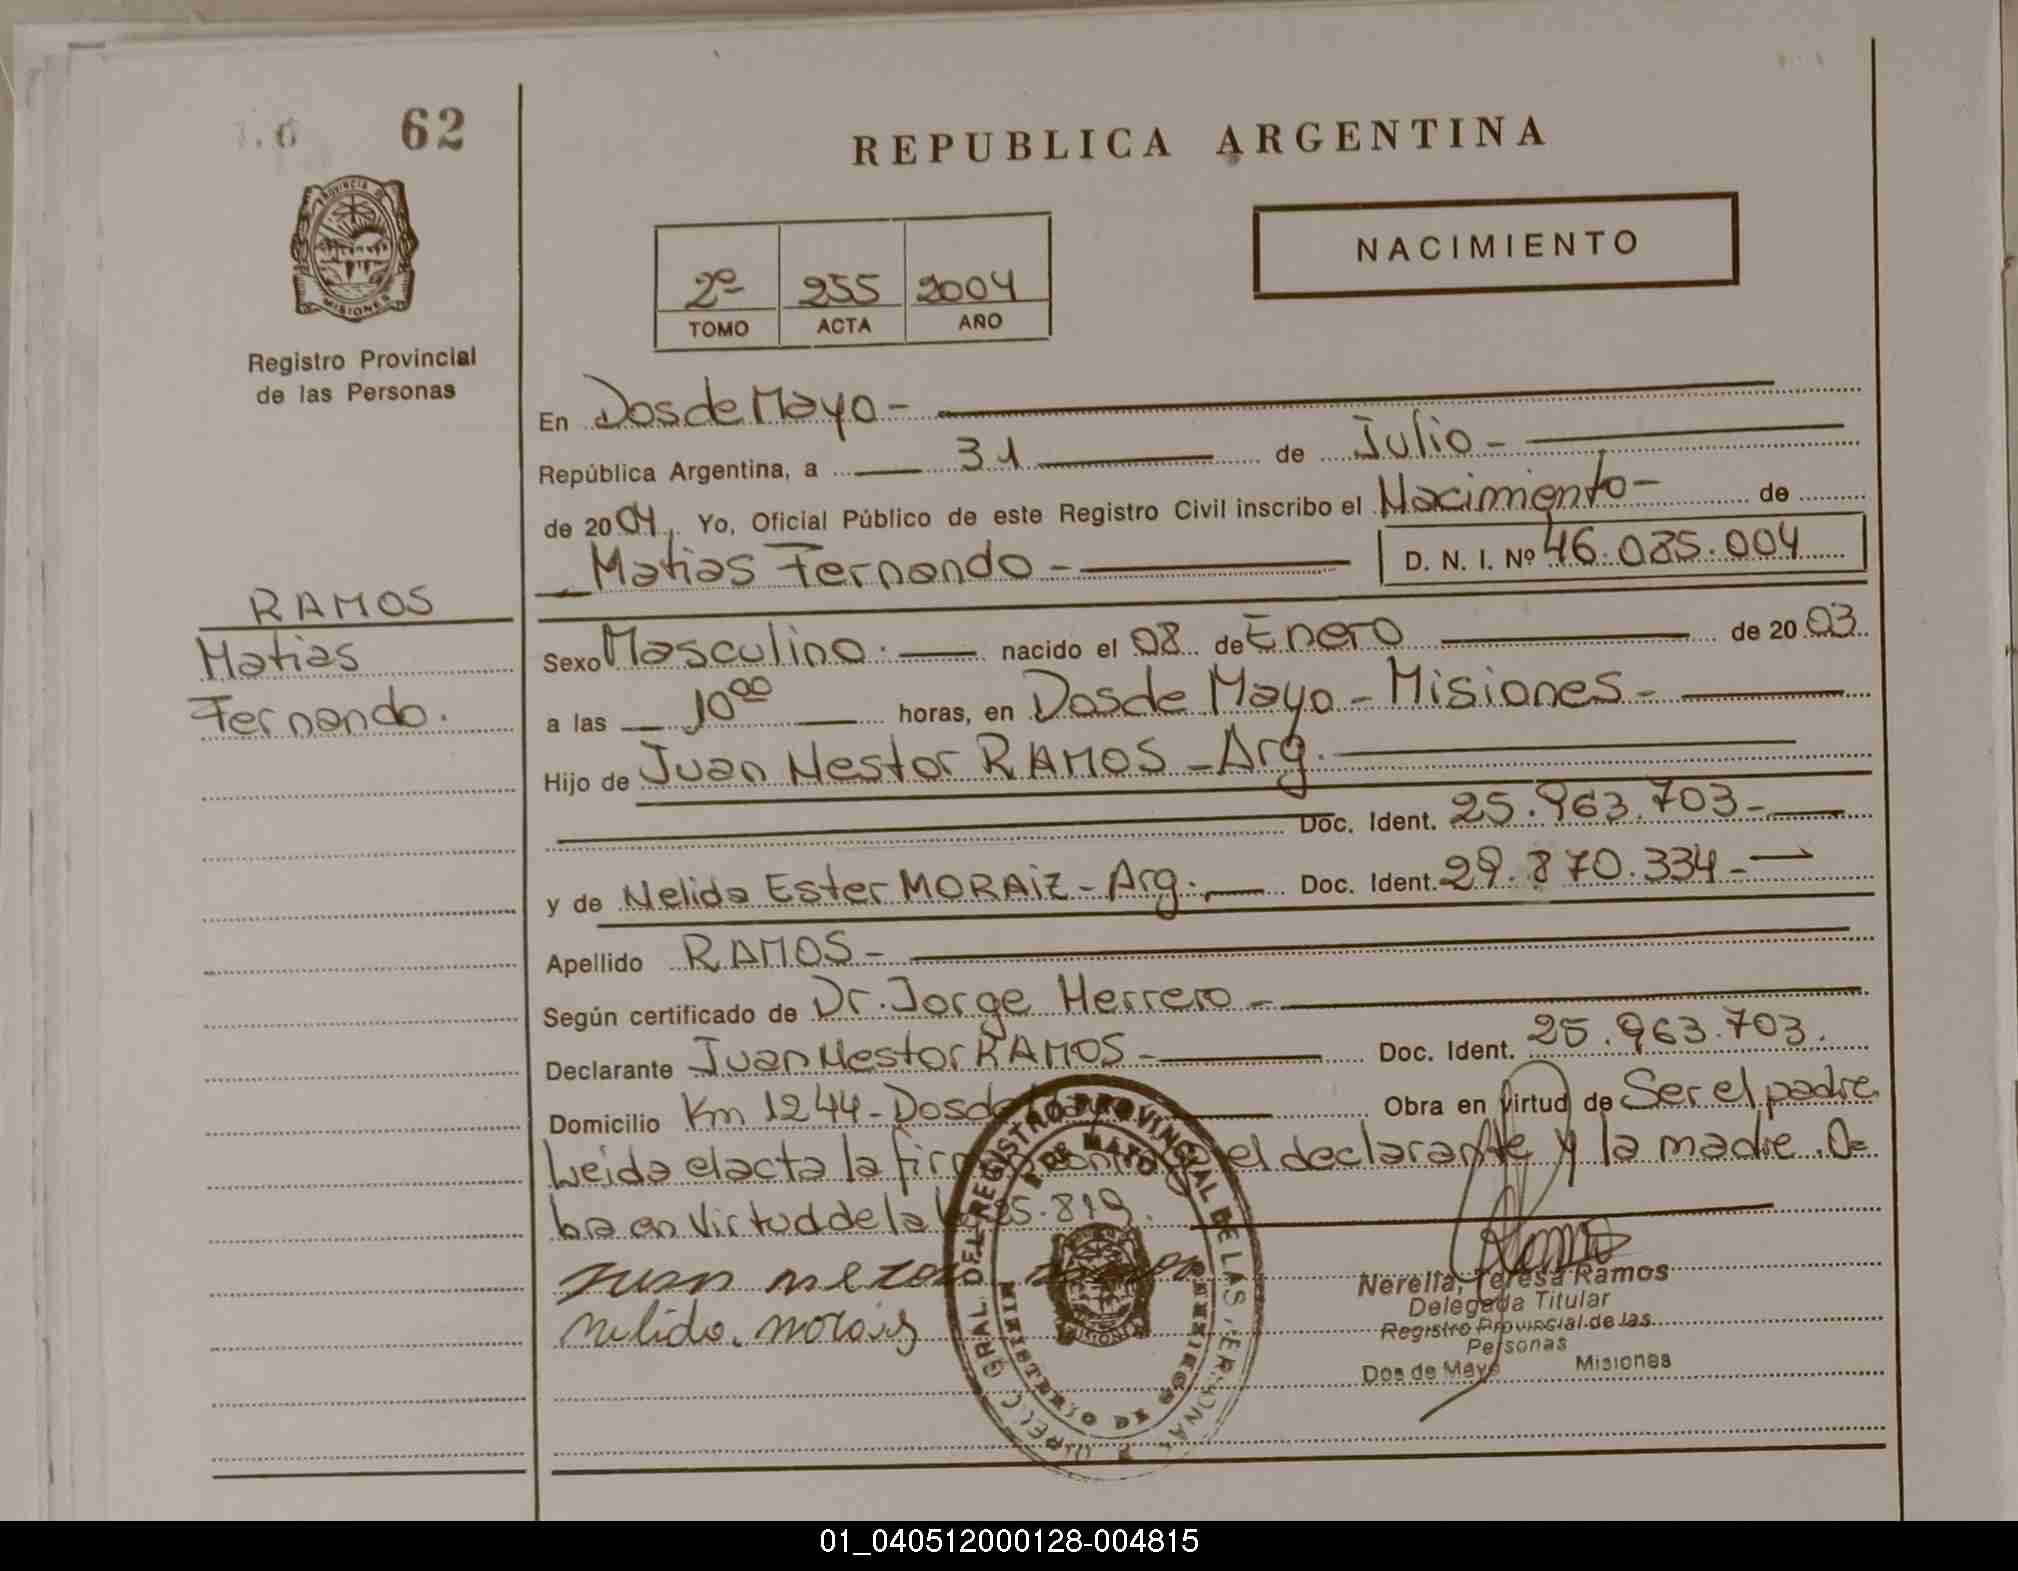 62
REPUBLICA ARGENTINA
NACIMIENTO
2º 255 2004
TOMO ACTA AÑO
PROVINCIA DE
MISIONES
Registro Provincial
de las Personas
En Dos de Mayo -
República Argentina, a 31 de Julio -
de 2004, Yo, Oficial Público de este Registro Civil inscribo el Nacimiento - de
Matias Fernando - D. N. I. Nº 46.085.004
RAMOS
Matias
Fernando.
Sexo Masculino. nacido el 08 de Enero de 2003
a las 10⁰⁰ horas, en Dos de Mayo - Misiones -
Hijo de Juan Nestor RAMOS - Arg.
Doc. Ident. 25.963.703 -
y de Nelida Ester MORAIZ - Arg. Doc. Ident. 29.870.334 -
Apellido RAMOS -
Según certificado de Dr. Jorge Herrero -
Declarante Juan Nestor RAMOS - Doc. Ident. 25.963.703.
Domicilio Km 1244 - Dos de Obra en virtud de Ser el padre
Leida el acta la el declarante y la madre. O=
bra en virtud de la 25.819.
Juan
nelida. morais
GRAL. DEL REGISTRO PROVINCIAL DE LAS
2 DE MAYO
MISIONES
Nerella, Teresa Ramos
Delegada Titular
Registro Provincial de las
Personas
Dos de Mayo Misiones
01_040512000128-004815